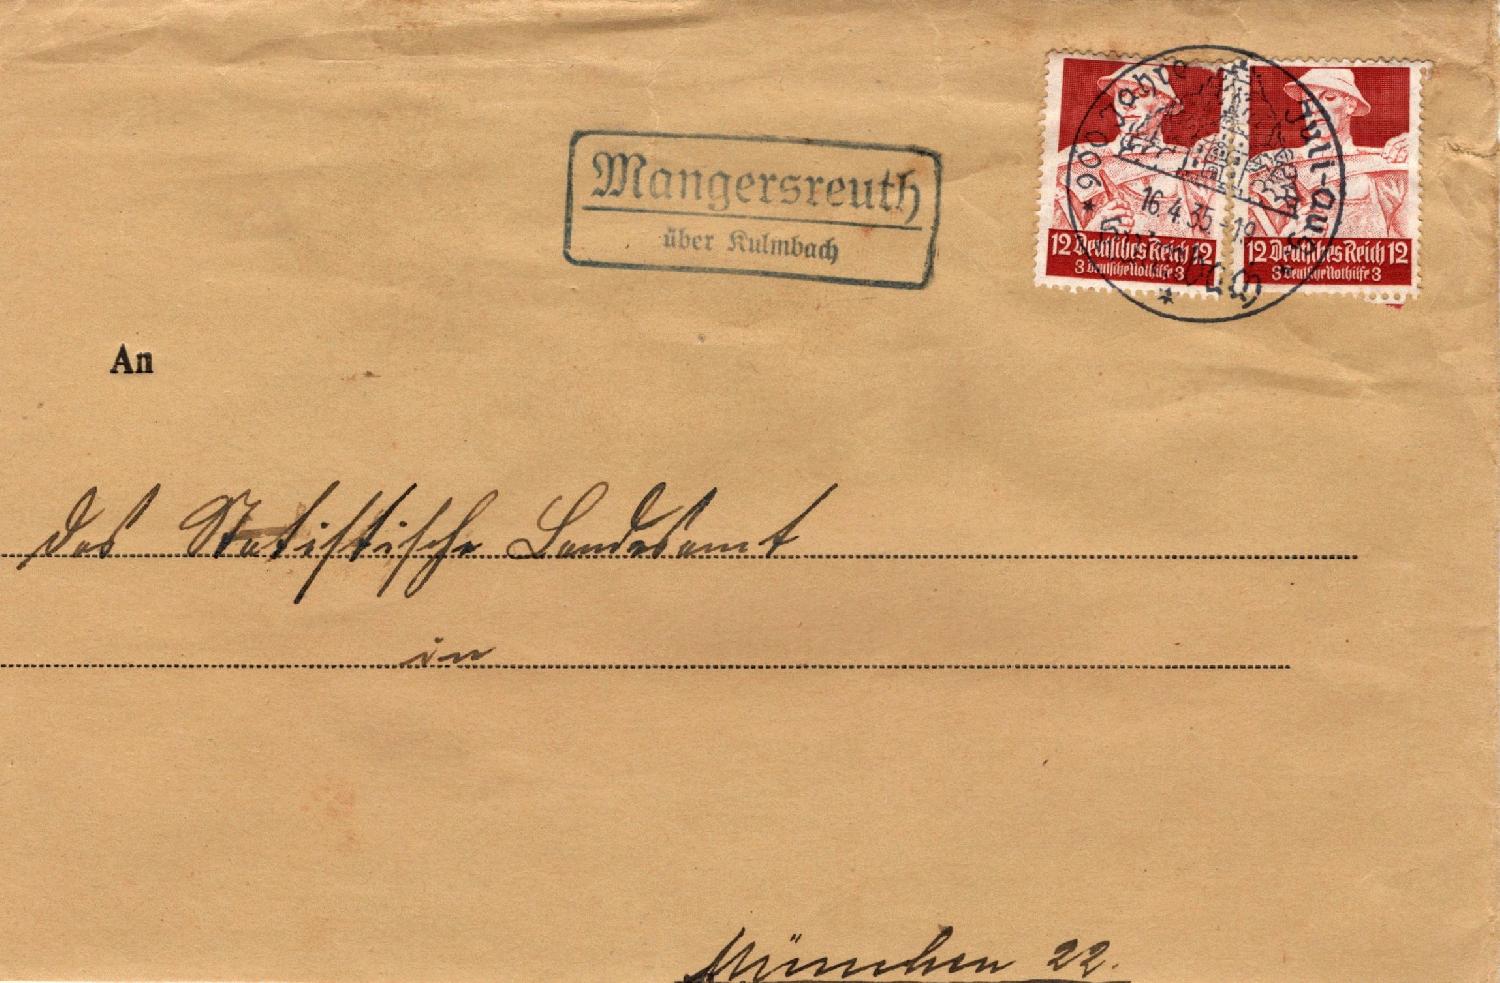 Mangersreuth
über Kulmbach
* 900 Jahre
16.4.35.-19
Kulmbach
12 Deutsches Reich 12
3 Deutsche Nothilfe 3
12 Deutsches Reich 12
3 Deutsche Nothilfe 3
An
das Statistische Landesamt
in
München 22.